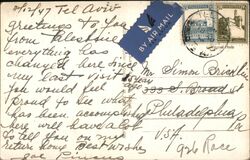 3/12/47 Tel Aviv
Greetings to you
from Palestine
everything has
changed here since
my last visit
you would feel
proud to see what
has been accomplished
here will have lots
to tell you on our
return home Best wishes
BY AIR MAIL
Mr Simon
333 S. Broad St
Philadelphia
Pa
U.S.A.